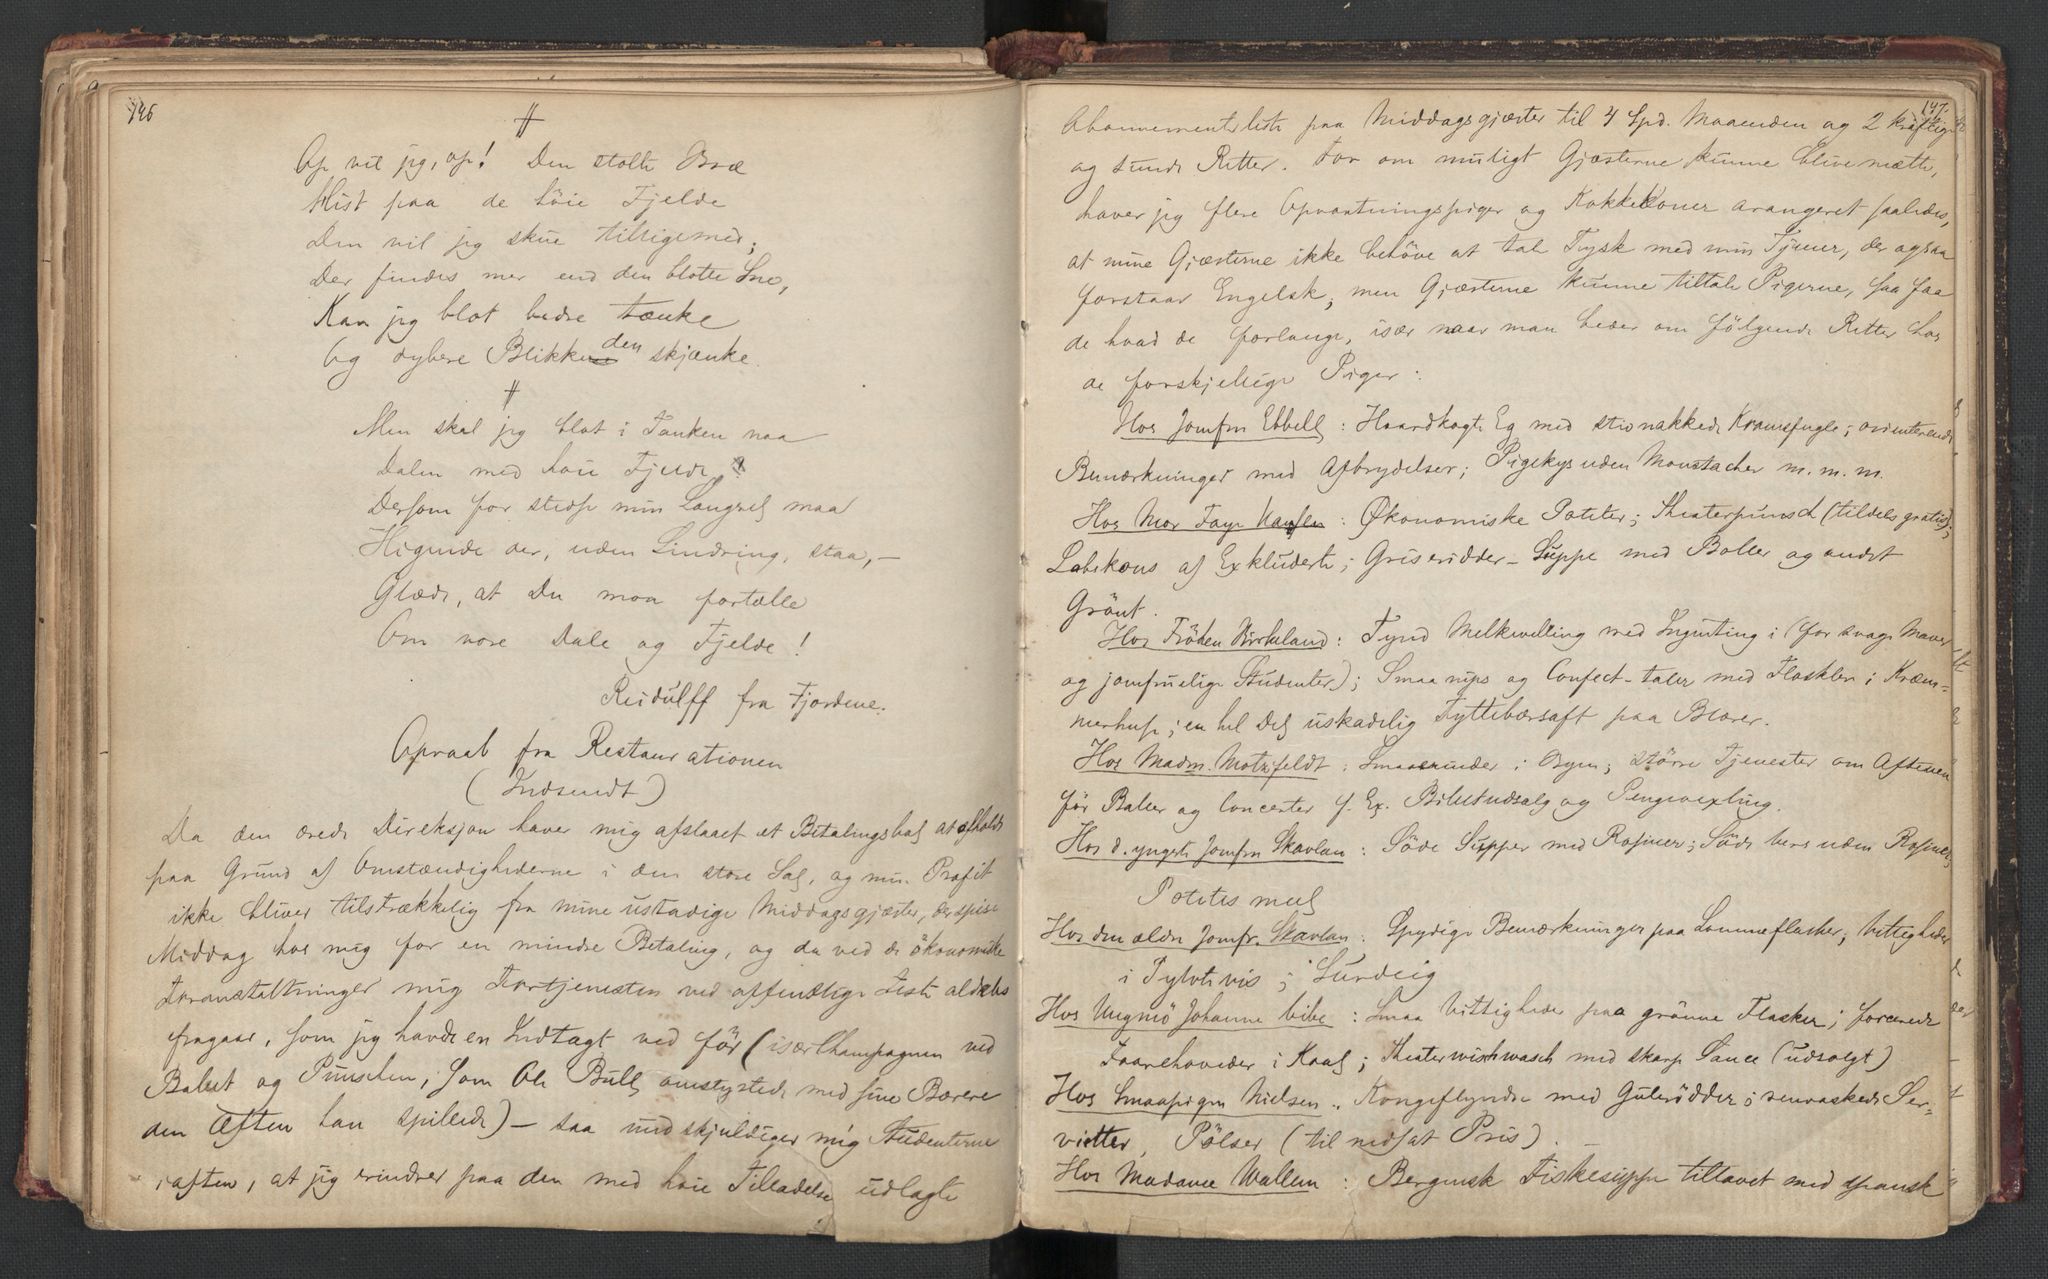 146
Op vil jeg, op! Den stolte Bræ
Hist paa de høie Fjelde
Den vil jeg skue tilligemed;
Der findes mer end den blotte Sne,
Kan jeg blot bedre tænke
Og dybere Blikke den skjænke.
Men skal jeg blot i Tanken naa
Dalen med høie Fjelde?
Dersom for stedse min Længsel maa
Higende der, uden Lindring, staa, –
Glæde, at Du maa fortælle
Om vore Dale og Fjelde!
Reidulff fra Fjordene.
Opraab fra Restaurationen
(Indsendt)
Da den ærede Direksjon haver mig afslaaet et Betalingsbal at afholde
paa Grund af Omstændighederne i den store Sal, og min Profit
ikke bliver tilstrækkelig fra mine ustadige Middagsgjæster, der spise
Middag hos mig for en mindre Betaling, og da ved de økonomiske
Foranstaltninger mig Fortjenesten ved offentlige Feste aldeles
fragaar, som jeg havde en Indtægt ved før (især Champagnen ved
Ballet og Punschen, som Ole Bull omstyrtede med sine Bærere
den Aften han spillede) – saa undskyldiger mig Studenterne
iaften, at jeg erindrer paa den med høie Tilladelse udlagte
147.
Abonnementsliste paa Middagsgjæster til 4 Spd. Maaneden og 2 kraftige
og sunde Retter. For om muligt Gjæsterne kunne blive mætte,
haver jeg flere Opvartningspiger og Kokkekoner arangeret saaledes,
at mine Gjæsterne ikke behöve at tale Tysk med min Tjener, der ogsaa
forstaar Engelsk; men Gjæsterne kunne tiltale Pigerne, saa faa
de hvad de forlange, især naar man beder om følgende Retter hos
de forskjellige Piger:
Hos Jomfru Ebbell: Haardkogte Eg med stivnakkede Kramsfugle; orienterende
Bemærkninger med Afbrydelser; Pigekys uden Moustacher m. m. m.
Hos Mor Faye Hansen: Økonomiske Poteter; Theaterpunsch (tildels gratis);
Labskous af Exkluderte; Griseridder-Suppe med Boller og andet
Grönt.
Hos Fröken Birkeland: Tynd Melkevelling med Ingenting i (for svage Maver
og jomfruelige Studenter); Smaa nips og Confect-taler med Flaskler i Kræm-
merhuse; en hel Del uskadelig Tyttebærsaft paa Blærer.
Hos Madm. Motzfeldt: Smaaærinder i Byen; större Tjenester om Aftenen
för Baller og Concerter f. Ex. Billetudsalg og Pengevexling.
Hos d. yngste Jomfru Skavlan: Söde Supper med Rosiner; Söde bers uden Rosiner;
Potetesmel
Hos den ældre Jomfru Skavlan: Spydige Bemærkninger paa Lommeflasker; Vittigheder
i Tylvtevis; Surdeig
Hos Ungmö Johanne Vibe: Smaa Vittigheder paa grönne Flasker; forcerede
Faarehoveder i Kaal; Theaterwischwasch med skarp Sauce (udsolgt)
Hos Smaapigen Nielsen: Kongeflyndre med Gulerødder; renvaskede Ser-
vietter, Pölser (til nedsat Pris). –
Hos Madame Wallem: Bergensk Fiskesuppe tillavet med spansk